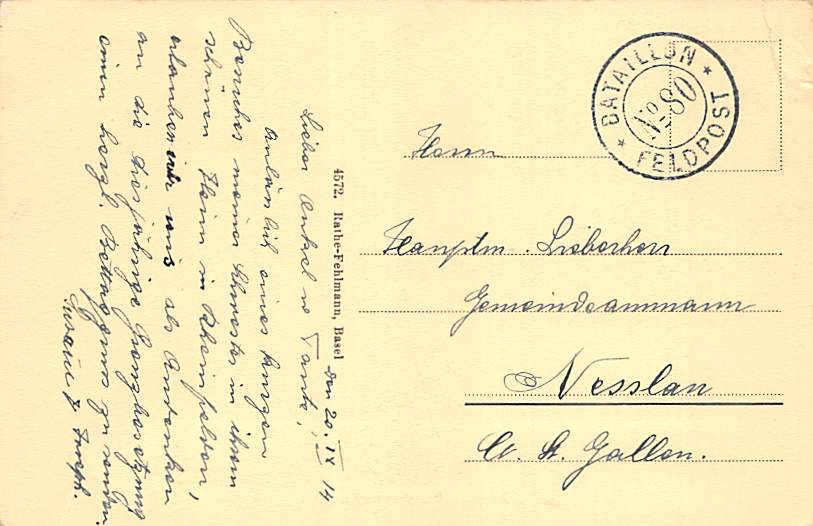 den 20. IX 14
Lieber Onkel u Tante,
Anläslich eines kurzen
Besuches meiner Schwester in ihrem
schönen Heim in Rheinfelden,
erlauben wir uns als Andenken
an die diesjährige Grenzbesetzung
einen herzl. Bettaggruss zu senden.
Joseph.
4572. Rathe-Fehlmann, Basel
BATAILLON
No 80
FELDPOST
Herrn
Hauptm. Lieberherr
Gemeindeammann
Nesslau
Ct. St. Gallen.